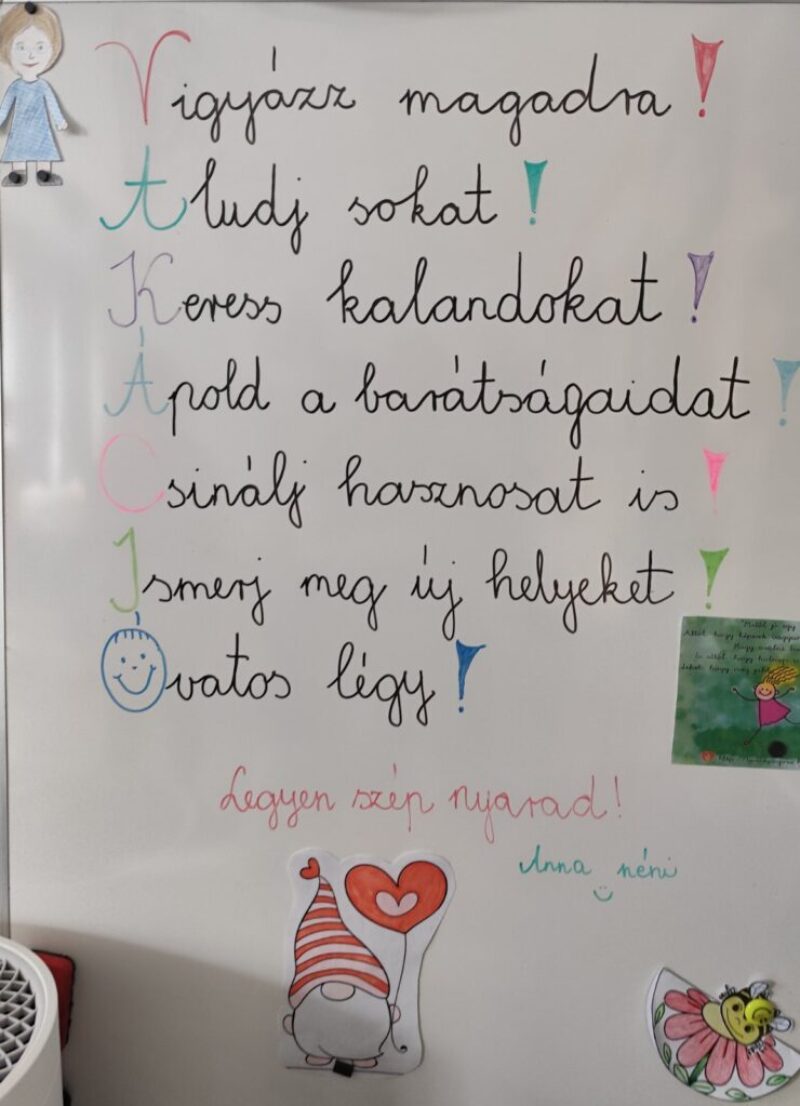 Vigyázz magadra!
Aludj sokat!
Keress kalandokat!
Ápold a barátságaidat!
Csinálj hasznosat is!
Ismerj meg új helyeket!
Óvatos légy!
Legyen szép nyarad!
Anna néni